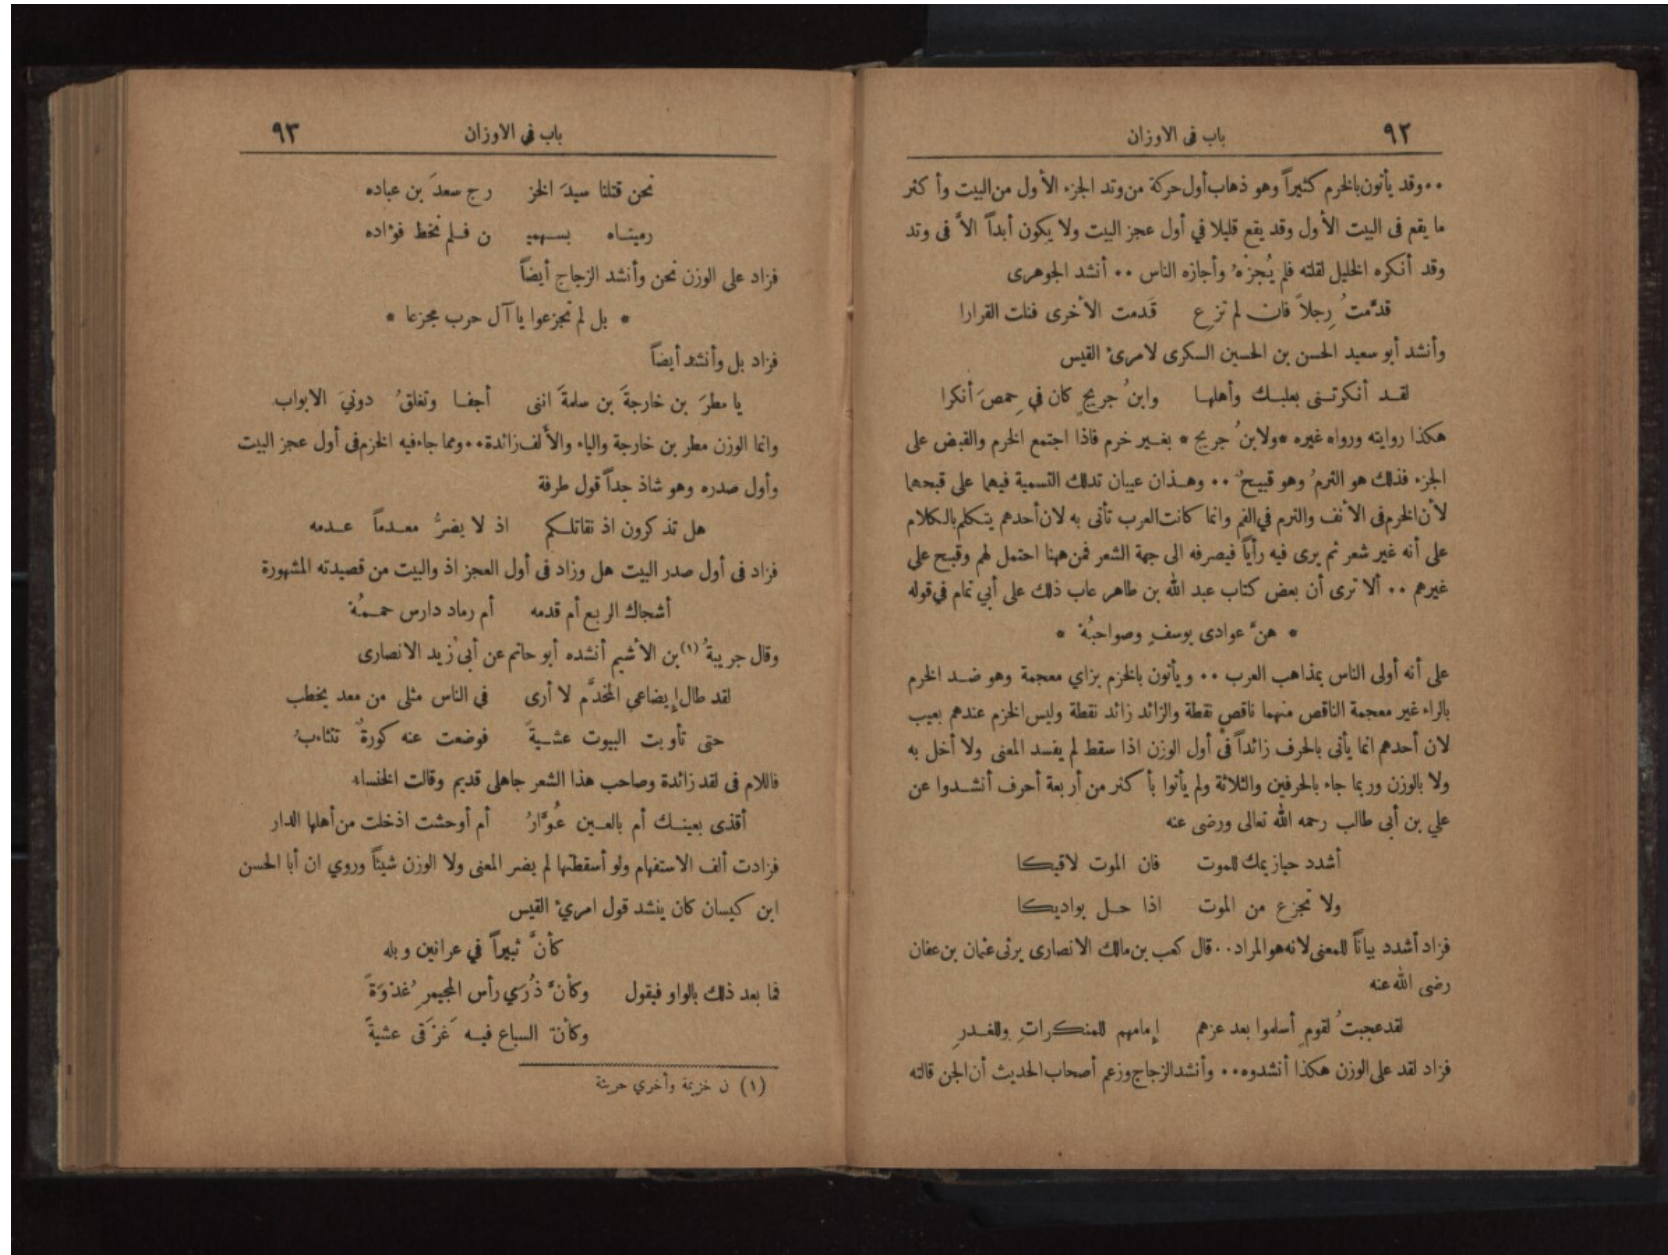 ٩٢
باب فى الاوزان
٠٠ وقد يأتون بالخرم كثيراً وهو ذهاب أول حركة من وتد الجزء الأول من البيت وأكثر
ما يقع فى البيت الأول وقد يقع قليلا في أول عجز البيت ولا يكون أبداً الاَّ فى وتد
وقد أنكره الخليل لقلته فلم يُجزْهُ وأجازه الناس ٠٠ أنشد الجوهرى
قدَّمتُ رِجلاً فان لم تزِع قَدمت الأخرى فنلت القرارا
وأنشد أبو سعيد الحسن بن الحسين السكرى لامرئ القيس
لقد أنكرتنى بعلبك وأهلها وابنُ جريجٍ كان في حِمصَ أنكرا
هكذا روايته ورواه غيره * ولابنُ جريج * بغير خرم فاذا اجتمع الخرم والقبض على
الجزء فذلك هو الثرمُ وهو قبيحٌ ٠٠ وهذان عيبان تدلك التسمية فيهما على قبحهما
لأن الخرم فى الأنف والثرم في الفم وانما كانت العرب تأتى به لان أحدهم يتكلم بالكلام
على أنه غير شعر ثم يرى فيه رأياً فيصرفه الى جهة الشعر فمن ههنا احتمل لهم وقبح على
غيرهم ٠٠ ألا ترى أن بعض كتاب عبد الله بن طاهر عاب ذلك على أبي تمام في قوله
* هنَّ عوادى يوسفٍ وصواحبُهْ *
على أنه أولى الناس بمذاهب العرب ٠٠ ويأتون بالخزم بزاي معجمة وهو ضد الخرم
بالراء غير معجمة الناقص منهما ناقص نقطة والزائد زائد نقطة وليس الخزم عندهم بعيب
لان أحدهم انما يأتى بالحرف زائداً في أول الوزن اذا سقط لم يفسد المعنى ولا أخل به
ولا بالوزن وربما جاء بالحرفين والثلاثة ولم يأتوا بأكثر من أربعة أحرف أنشدوا عن
علي بن أبى طالب رحمه الله تعالى ورضى عنه
أشدد حيازيمك للموت فان الموت لاقيكا
ولا تجزع من الموت اذا حل بواديكا
فزاد أشدد بياناً للمعنى لانه هو المراد ٠٠ قال كعب بن مالك الانصارى يرثى عثمان بن عفان
رضى الله عنه
لقد عجبتُ لقومٍ أسلموا بعد عزهم إمامهم للمنكراتِ وللغدرِ
فزاد لقد على الوزن هكذا أنشدوه ٠٠ وأنشد الزجاج وزعم أصحاب الحديث أن الجن قالته
٩٣
باب فى الاوزان
نحن قتلنا سيدَ الخز رج سعدَ بن عباده
رميناه بسهمي ن فلم نخط فؤاده
فزاد على الوزن نحن وأنشد الزجاج أيضاً
* بل لم تجزعوا يا آل حرب مجزعا *
فزاد بل وأنشد أيضاً
يا مطرَ بن خارجةَ بن سلمةَ اننى أجفا وتغلقُ دونيَ الابواب
وانما الوزن مطر بن خارجة والياء والألف زائدة ٠٠ ومما جاء فيه الخزم فى أول عجز البيت
وأول صدره وهو شاذ جداً قول طرفة
هل تذكرون اذ نقاتلكم اذ لا يضرُّ معدماً عدمه
فزاد فى أول صدر البيت هل وزاد فى أول العجز اذ والبيت من قصيدته المشهورة
أشجاك الربع أم قدمه أم رماد دارس حممُهْ
وقال جريبةُ (١) بن الأشيم أنشده أبو حاتم عن أبي زيد الانصارى
لقد طال إيضاعي المخدَّم لا أرى في الناس مثلى من معد يخطب
حتى تأوبت البيوت عشيةً فوضعت عنه كورةً تتثاءبُ
فاللام فى لقد زائدة وصاحب هذا الشعر جاهلى قديم وقالت الخنساء
أقذى بعينك أم بالعين عُوَّارُ أم أوحشت اذ خلت من أهلها الدار
فزادت ألف الاستفهام ولو أسقطتها لم يضر المعنى ولا الوزن شيئاً وروي ان أبا الحسن
ابن كيسان كان ينشد قول امرئ القيس
كأنَّ ثبيراً في عرانين وبله
فما بعد ذلك بالواو فيقول وكأنَّ ذُرَي رأس المجيمرِ غدْوَةً
وكأنَّ السباع فيه غَرْقى عشيةً
(١) ن خزيمة وأخري حريثة